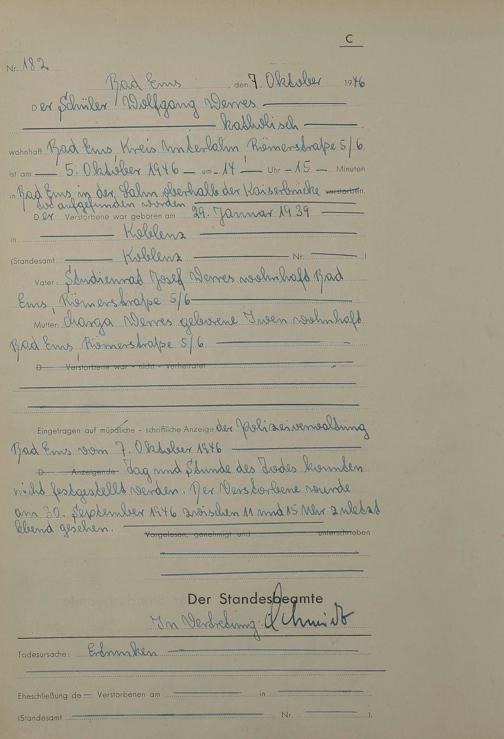 C
Nr. 182
Bad Ems, den 7. Oktober 1946
Der Schüler Wolfgang Derres
katholisch
wohnhaft Bad Ems Kreis Unterlahn, Römerstraße 5/6
ist am 5. Oktober 1946 um 14 Uhr 15 Minuten
in Bad Ems, in der Lahn oberhalb der Kaiserbrücke verstorben.
tot aufgefunden worden
Der Verstorbene war geboren am 29. Januar 1939
in Koblenz
(Standesamt Koblenz Nr. )
Vater: Studienrad Josef Derres wohnhaft Bad
Ems, Römerstraße 5/6
Mutter: Derres geborene wohnhaft
Bad Ems, Römerstraße 5/6
D Verstorbene war - nicht - verheiratet
Eingetragen auf mündliche - schriftliche Anzeige der Polizeiverwaltung
Bad Ems vom 7. Oktober 1946
D Anzeigende Tag und Stunde des Todes konnten
nicht festgestellt werden. Der Verstorbene wurde
am 30. September 1946 zwischen 11 und 15 Uhr zuletzt
lebend gesehen.
Vorgelesen, genehmigt und unterschrieben
Der Standesbeamte
In Vertretung: Schmidt
Todesursache: Ertrunken
Eheschließung de Verstorbenen am in
(Standesamt Nr. ).